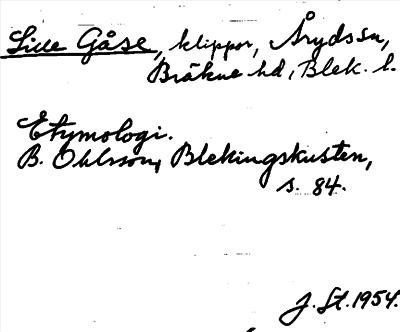 Lille Gåse, klippor, Åryds sn,
Bräkne hd, Blek. l.
Etymologi.
B. Ohlsson, Blekingskusten,
s. 84.
J. St. 1954.